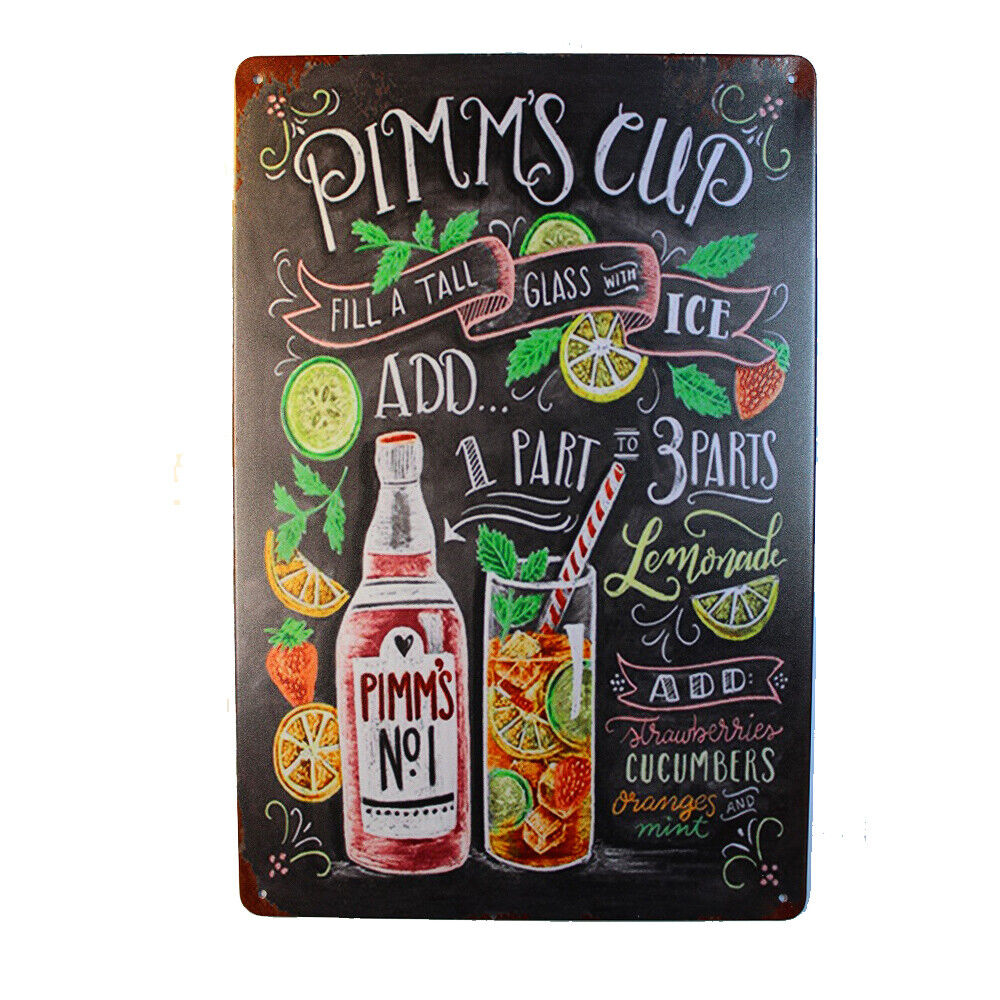 PIMM'S CUP
FILL A TALL GLASS WITH ICE
ADD...
1 PART TO 3 PARTS
Lemonade
PIMM'S
No. 1
ADD:
strawberries
CUCUMBERS
oranges AND
mint